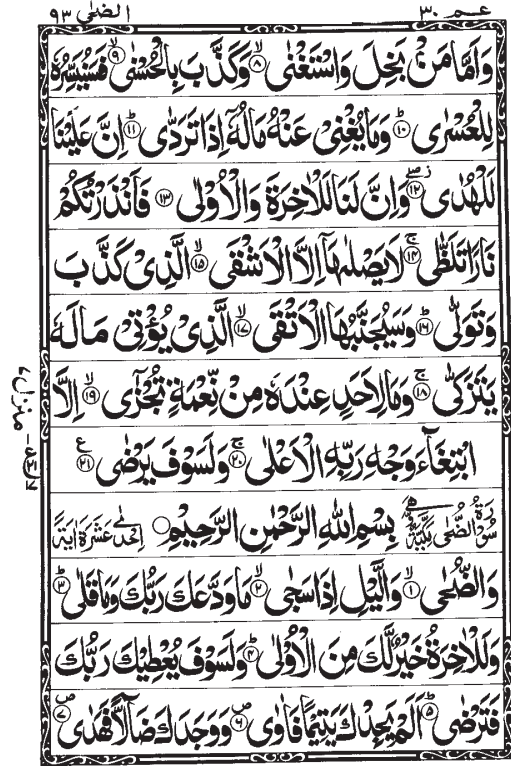 عـم ٣٠ الضحى ٩٣
وَاَمَّا مَنْۢ بَخِلَ وَاسْتَغْنٰى ۙ﴿۸﴾ وَكَذَّبَ بِالْحُسْنٰى ۙ﴿۹﴾ فَسَنُيَسِّرُهٗ
لِلْعُسْرٰى ؕ﴿۱۰﴾ وَمَا يُغْنِىْ عَنْهُ مَالُهٗۤ اِذَا تَرَدّٰى ؕ﴿۱۱﴾ اِنَّ عَلَيْنَا
لَلْهُدٰى ۖ﴿۱۲﴾ وَاِنَّ لَنَا لَلْاٰخِرَةَ وَالْاُوْلٰى ﴿۱۳﴾ فَاَنْذَرْتُكُمْ
نَارًا تَلَظّٰى ۚ﴿۱۴﴾ لَا يَصْلٰٮهَاۤ اِلَّا الْاَشْقَى ۙ﴿۱۵﴾ الَّذِىْ كَذَّبَ
وَتَوَلّٰى ؕ﴿۱۶﴾ وَسَيُجَنَّبُهَا الْاَتْقَى ۙ﴿۱۷﴾ الَّذِىْ يُؤْتِىْ مَالَهٗ
يَتَزَكّٰى ۚ﴿۱۸﴾ وَمَا لِاَحَدٍ عِنْدَهٗ مِنْ نِّعْمَةٍ تُجْزٰٓى ۙ﴿۱۹﴾ اِلَّا
ابْتِغَآءَ وَجْهِ رَبِّهِ الْاَعْلٰى ۚ﴿۲۰﴾ وَلَسَوْفَ يَرْضٰى ﴿۲۱﴾ ع
سُوْرَةُ الضُّحٰى مَكِّيَّةٌ بِسْمِ اللّٰهِ الرَّحْمٰنِ الرَّحِيْمِ اِحْدٰى عَشَرَةَ اٰيَةً
وَالضُّحٰى ۙ﴿۱﴾ وَالَّيْلِ اِذَا سَجٰى ۙ﴿۲﴾ مَا وَدَّعَكَ رَبُّكَ وَمَا قَلٰى ؕ﴿۳﴾
وَلَلْاٰخِرَةُ خَيْرٌ لَّكَ مِنَ الْاُوْلٰى ؕ﴿۴﴾ وَلَسَوْفَ يُعْطِيْكَ رَبُّكَ
فَتَرْضٰى ؕ﴿۵﴾ اَلَمْ يَجِدْكَ يَتِيْمًا فَاٰوٰى ۪﴿۶﴾ وَوَجَدَكَ ضَآلًّا فَهَدٰى ۪﴿۷﴾
منزل ۷